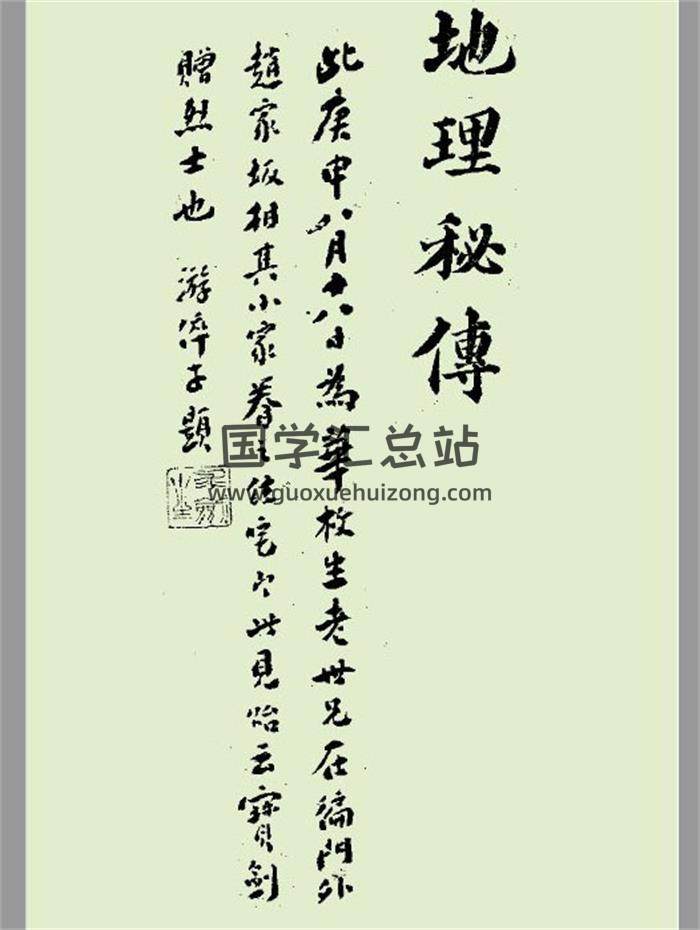 地理秘傳
此庚申八月十八日為華枚生老世兄在徧門外
趙家坂相其小家眷住宅以此見貽云寶劍
贈烈士也 游倅子題
国学汇总站
www.guoxuehuizong.com